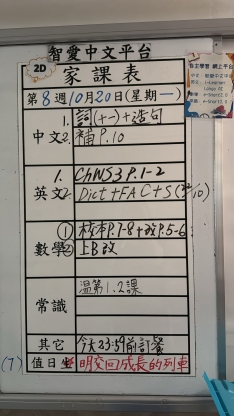 智愛中文平台
2D
家課表
第8週10月20日(星期一)
中文
1. 詞(十一)+造句
2. 補P.10
英文
1. ChWS3 P.1-2
2. Dict+FAC+S(22/10)
數學
① 校本P.7-8+改P.5-6
② 上B改
常識
溫第1.2課
其它
今天23:59前訂餐
(7)
值日生
明交回成長的列車
自主學習 網上平台